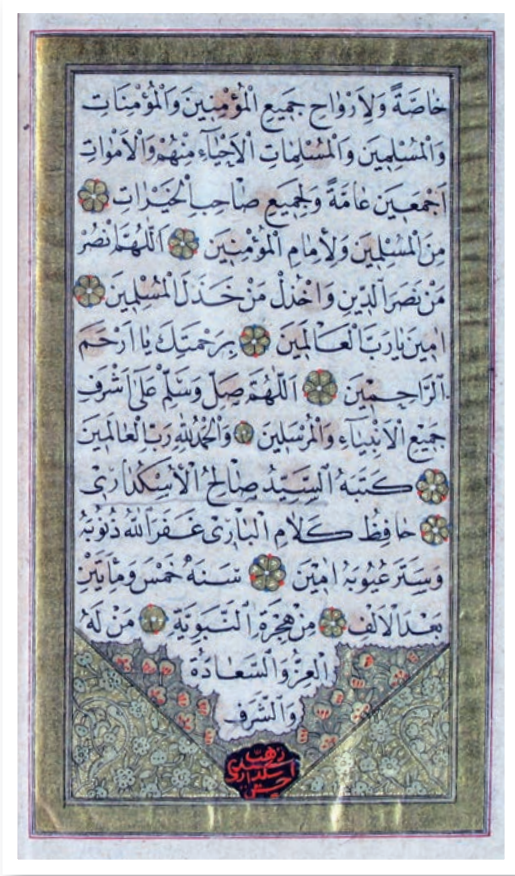 خَاصَّةً وَلِاَرْوَاحِ جَمِيعِ الْمُؤْمِنِينَ وَالْمُؤْمِنَاتِ
وَالْمُسْلِمِينَ وَالْمُسْلِمَاتِ الْاَحْيَاءِ مِنْهُمْ وَالْاَمْوَاتِ
اَجْمَعِينَ عَامَّةً وَلِجَمِيعِ صَاحِبِ الْخَيْرَاتِ
مِنَ الْمُسْلِمِينَ وَلِاِمَامِ الْمُؤْمِنِينَ اَللّٰهُمَّ انْصُرْ
مَنْ نَصَرَ الدِّينِ وَاخْذُلْ مَنْ خَذَلَ الْمُسْلِمِينَ
اٰمِينَ يَا رَبَّ الْعَالَمِينَ بِرَحْمَتِكَ يَا اَرْحَمَ
الرَّاحِمِينَ اَللّٰهُمَّ صَلِّ وَسَلِّمْ عَلٰى اَشْرَفِ
جَمِيعِ الْاَنْبِيَاءِ وَالْمُرْسَلِينَ وَالْحَمْدُ لِلّٰهِ رَبِّ الْعَالَمِينَ
كَتَبَهُ السَّيِّدُ صَالِحُ الْاُسْكُدَارِى
حَافِظُ كَلَامِ الْبَارِى غَفَرَ اللّٰهُ ذُنُوبَهُ
وَسَتَرَ عُيُوبَهُ اٰمِينَ سَنَهْ خَمْسَ وَمِأَتَيْنِ
بَعْدَ الْاَلْفِ مِنْ هِجْرَةِ النَّبَوِيَّةِ مَنْ لَهُ
الْعِزُّ وَالسَّعَادَةُ
وَالشَّرَفِ